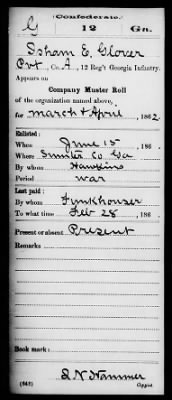 (Confederate.)
G 12 Ga.
Isham E. Glover
Pvt, Co. A., 12 Reg't Georgia Infantry.
Appears on
Company Muster Roll
of the organization named above,
for March & April, 1862.
Enlisted:
When June 15, 186 .
Where Sumter Co Ga
By whom Hawkins
Period war
Last paid:
By whom Funkhouser
To what time Feb 28, 186 .
Present or absent Present
Remarks:
Book mark:
S N Hammer
(642) Copyist.